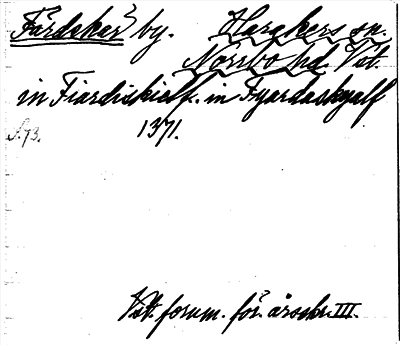 Färdskär by. Harakers sn.
Norrbo hd. Vst.
in Fiardiskialf. in Fyardaskyalf
S. 73. 1371.
Vst. fornm. för. årsskr. III.